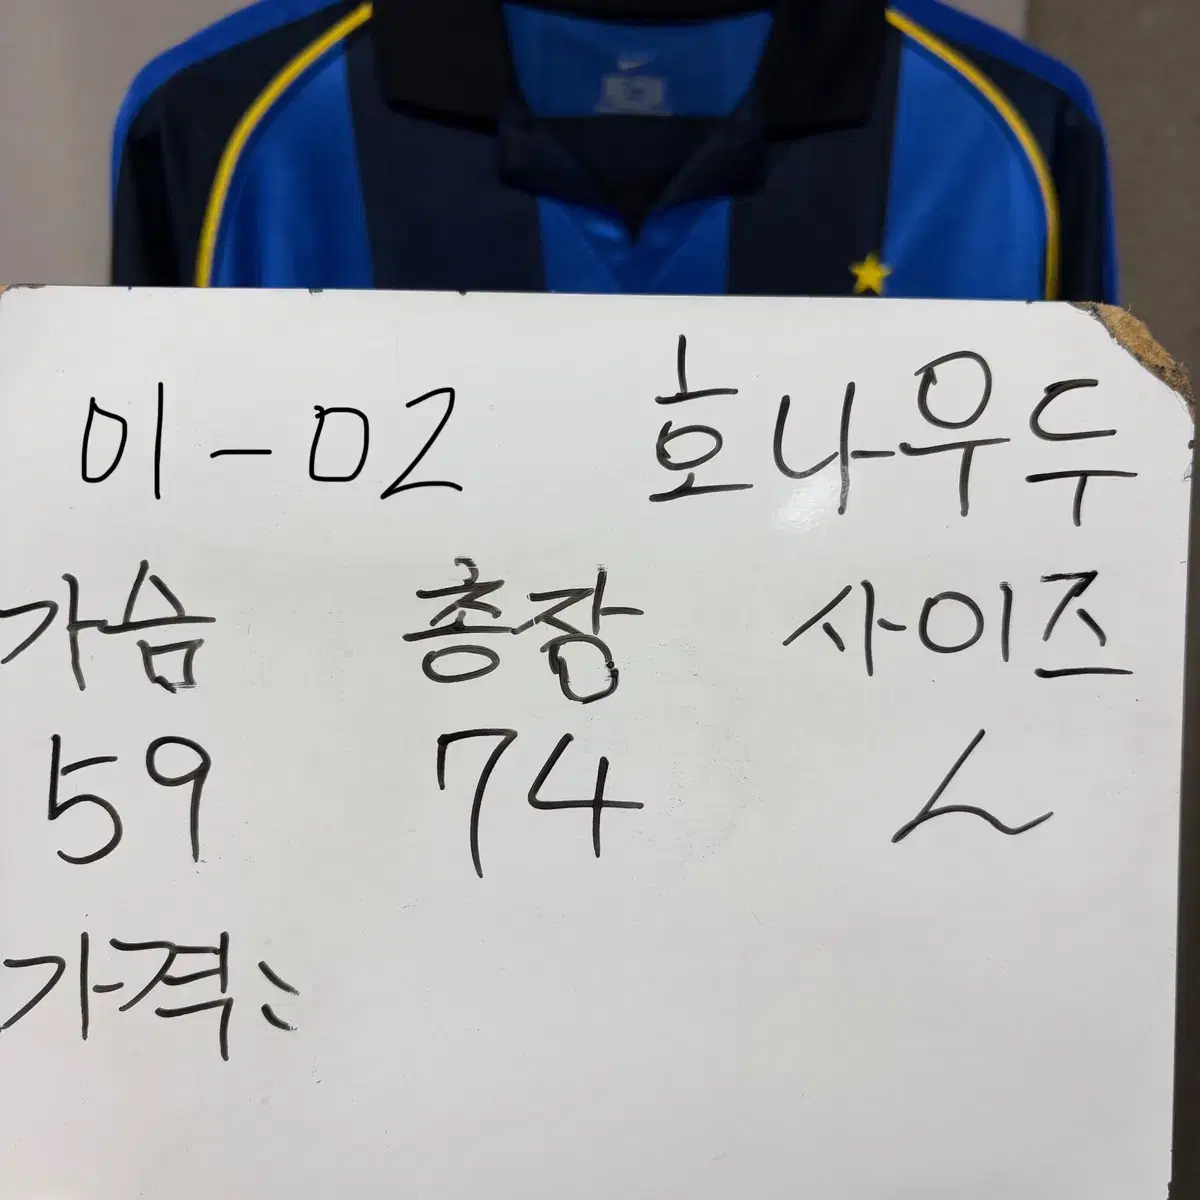 01-02 호나우두
가슴 총장 사이즈
59 74 L
가격: